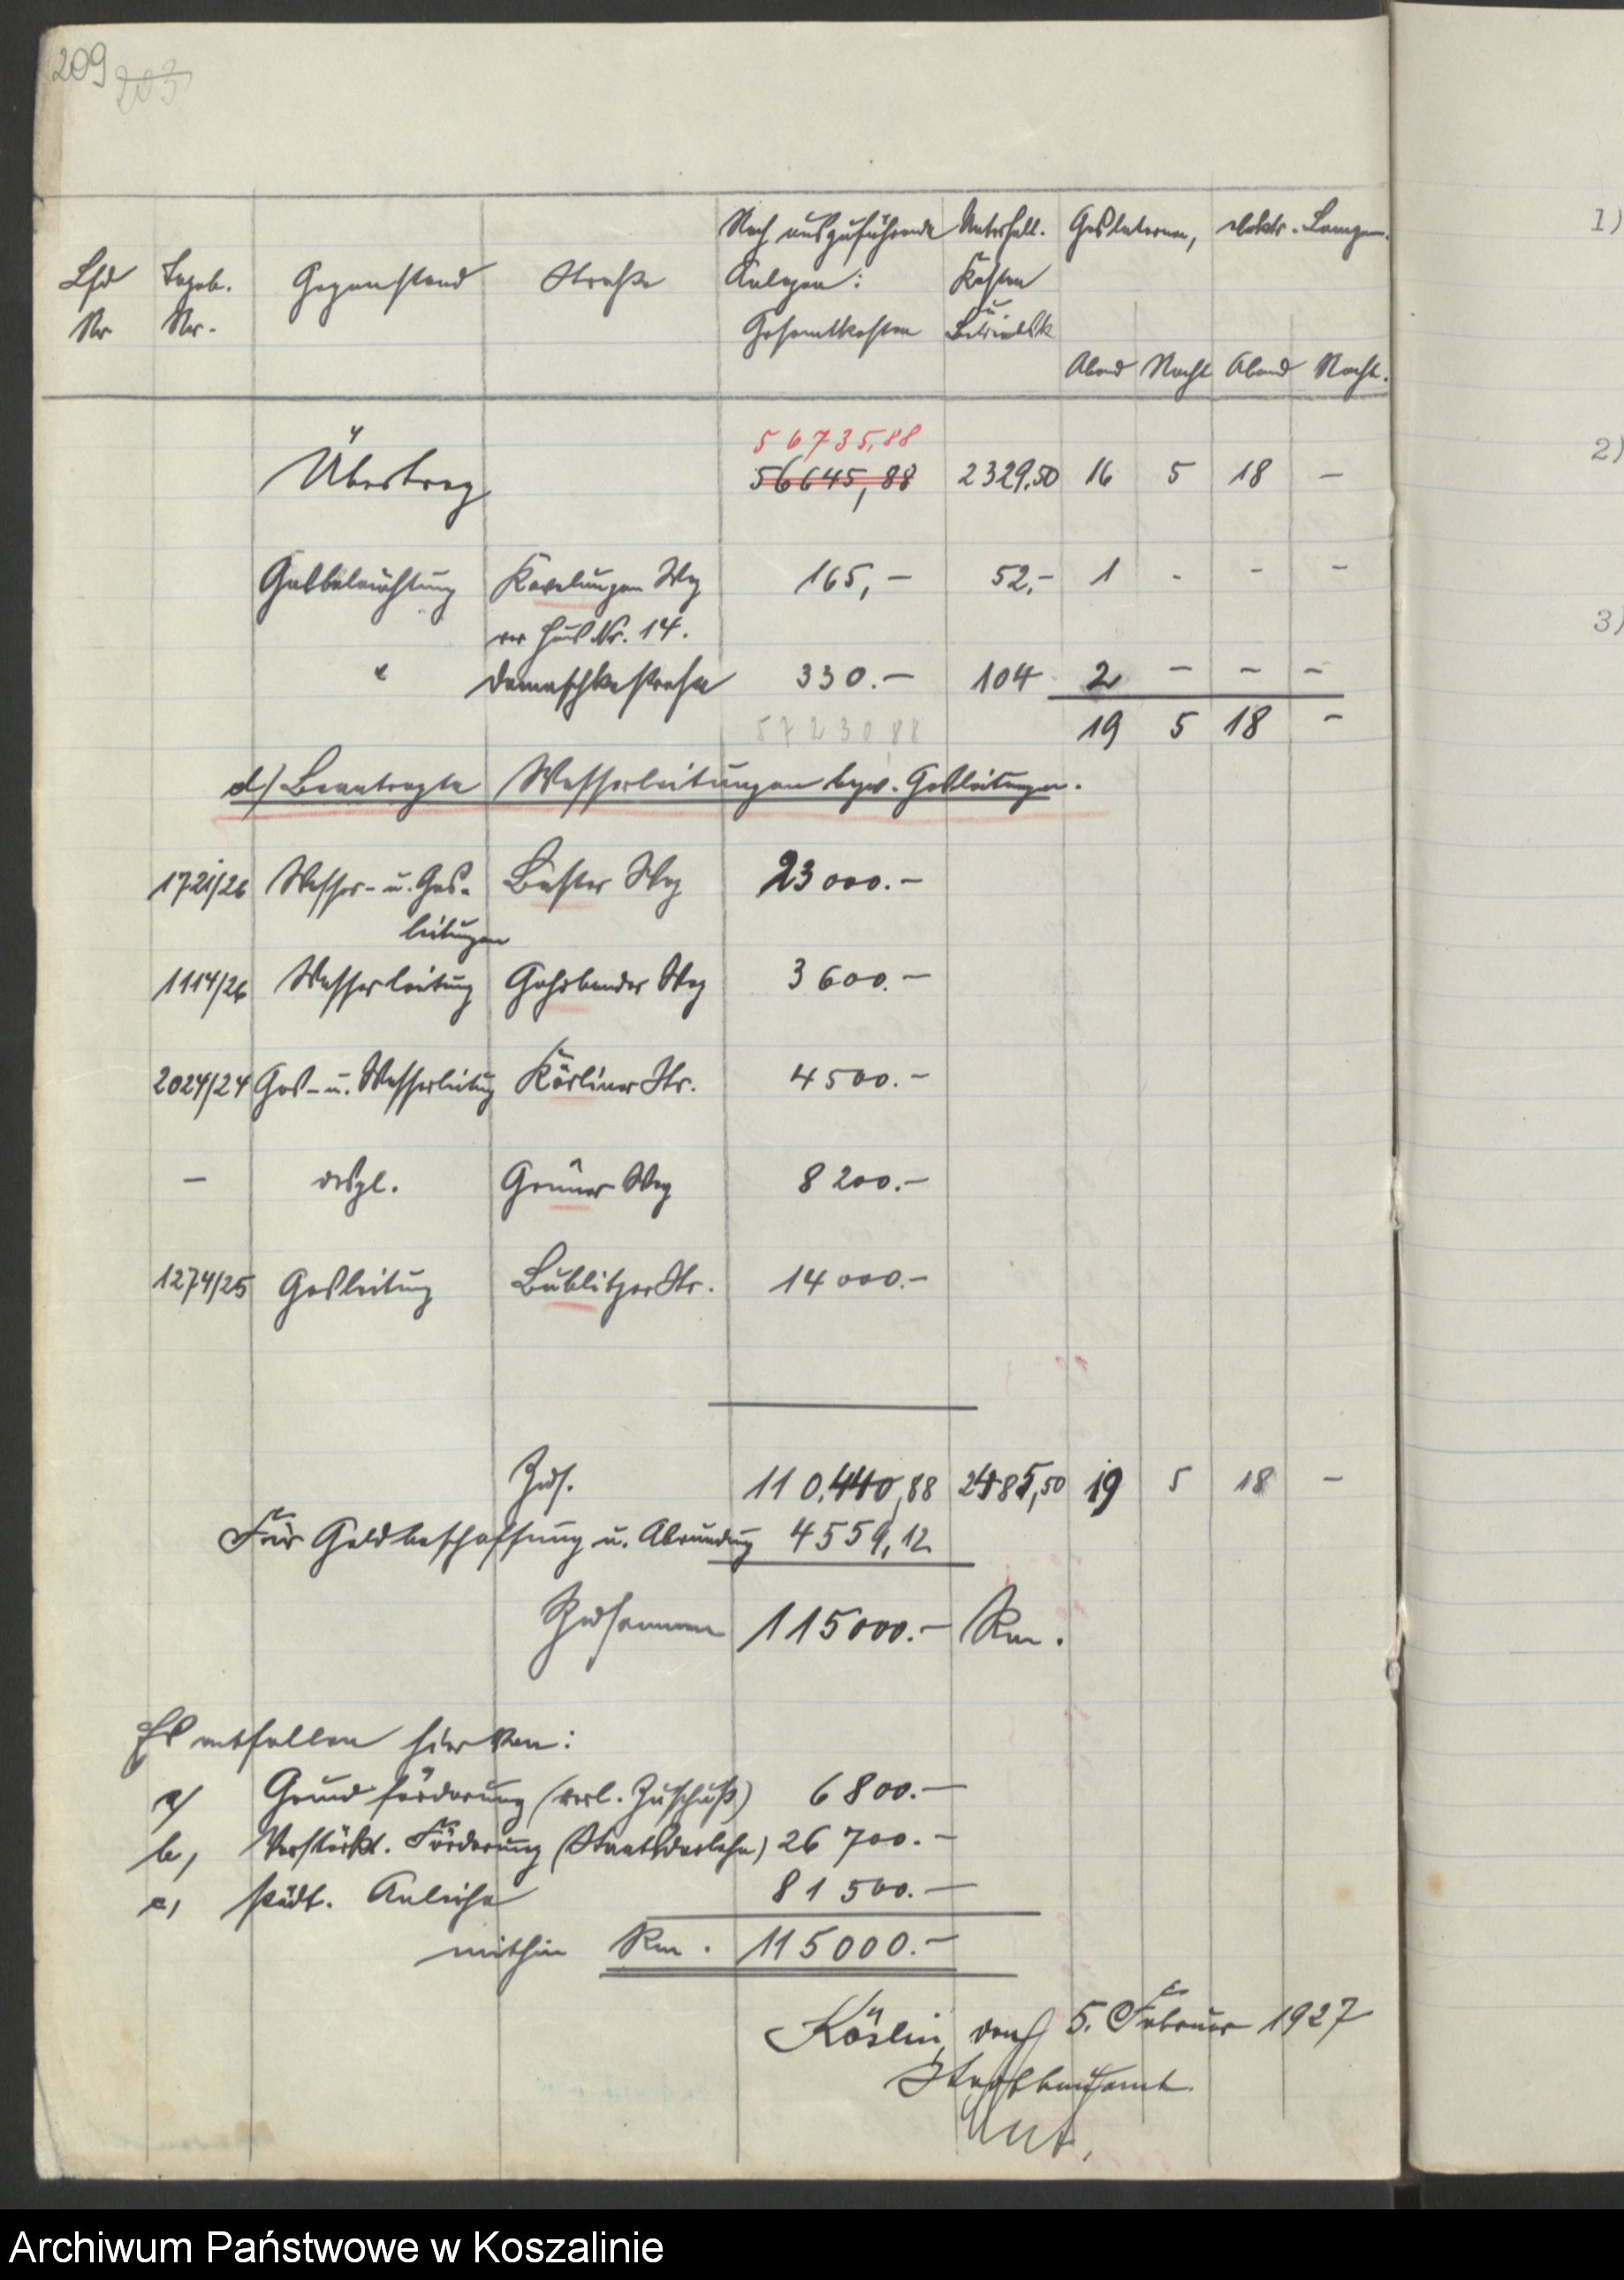 209 203
Lfd Nr
Tageb. Nr.
Gegenstand
Straße
Noch auszuführende Anlagen: Gesamtkosten
Unterhalt. Kosten u. Betriebsk
Gaslaternen, elektr. Lampen.
Abend Nacht Abend Nacht.
56735,88
Übertrag 56645,88 2329,50 16 5 18 –
Gasbeleuchtung Kavelungen Weg 165,– 52,– 1 - - -
vor Haus Nr. 14.
" Damaschkestraße 330.– 104 2 – – –
57230 88 19 5 18 –
d) Beantragte Wasserleitungen bezw. Gasleitungen.
1721/26 Wasser- u. Gas- Buster Weg 23000.–
leitungen
1114/26 Wasserleitung Gohrbander Weg 3600.–
2024/24 Gas- u. Wasserleitung Körliner Str. 4500.–
– desgl. Grüner Weg 8200.–
1274/25 Gasleitung Bublitzer Str. 14000.–
Zus. 110.440,88 2485,50 19 5 18 –
Für Geldbeschaffung u. Abrundung 4559,12
Zusammen 115000.– Rm.
Es entfallen hier von:
a) Grundförderung (verl. Zuschuß) 6800.–
b, Verstärkt. Förderung (Staatsdarlehn) 26700.–
c, städt. Anleihe 81500.–
mithin Rm. 115000.–
Köslin, den 5. Februar 1927
Stadtbauamt
1)
2)
3)
Archiwum Państwowe w Koszalinie